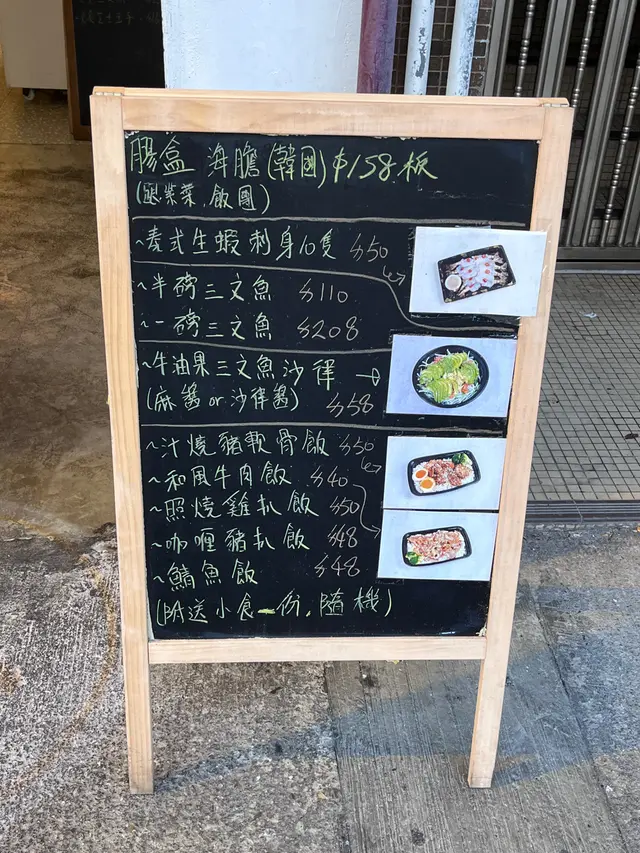 腸盒 海膽(韓國)$158板
(跟紫菜,飯團)
~泰式生蝦刺身10隻 $50
~半磅三文魚 $110
~一磅三文魚 $208
~牛油果三文魚沙律
(麻醬or沙律醬) $58
~汁燒豬軟骨飯 $50
~和風牛肉飯 $40
~照燒雞扒飯 $50
~咖喱豬扒飯 $48
~鯖魚飯 $48
(BA送小食一份,隨機)